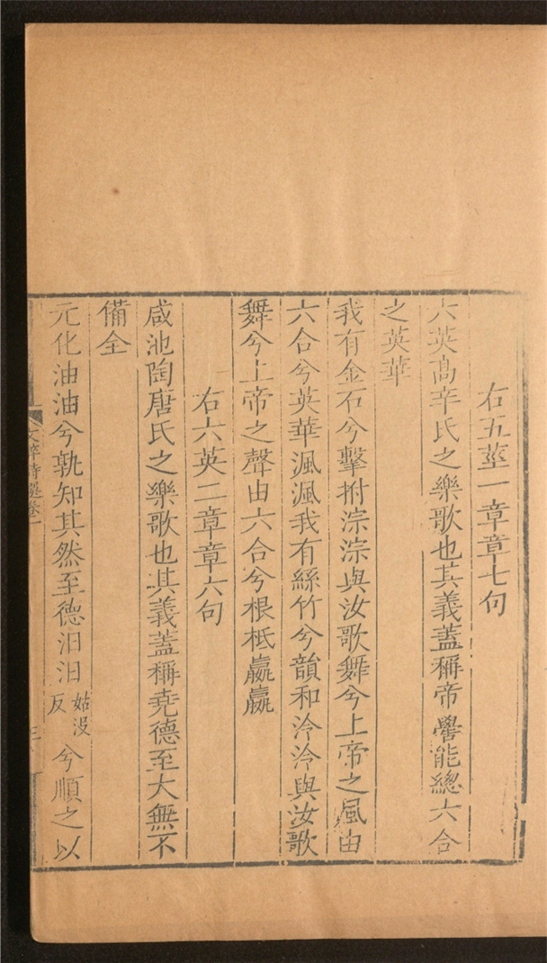 右五莖一章章七句
六英高辛氏之樂歌也其義蓋稱帝嚳能總六合
之英華
我有金石兮擊拊淙淙與汝歌舞兮上帝之風由
六合兮英華渢渢我有絲竹兮韻和泠泠與汝歌
舞兮上帝之聲由六合兮根柢嬴嬴
右六英二章章六句
咸池陶唐氏之樂歌也其義蓋稱堯德至大無不
備全
元化油油兮孰知其然至德汩汩姑没反兮順之以
文粹詩選卷一
三